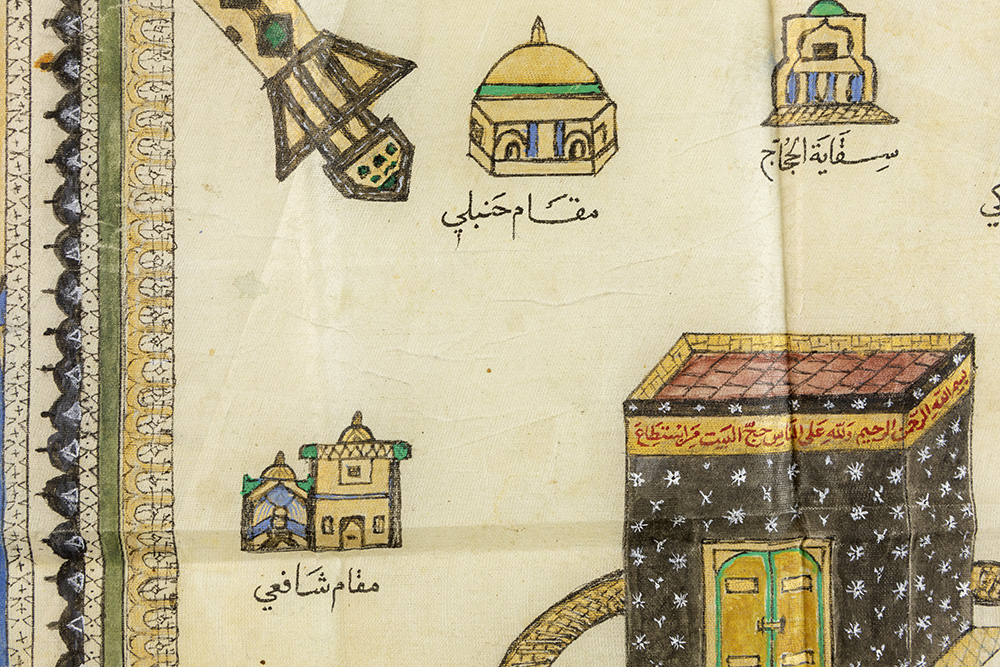 سقاية الحجاج
مقام حنبلي
بسم الله الرحمن الرحيم ولله على الناس حج البيت من استطاع
مقام شافعي